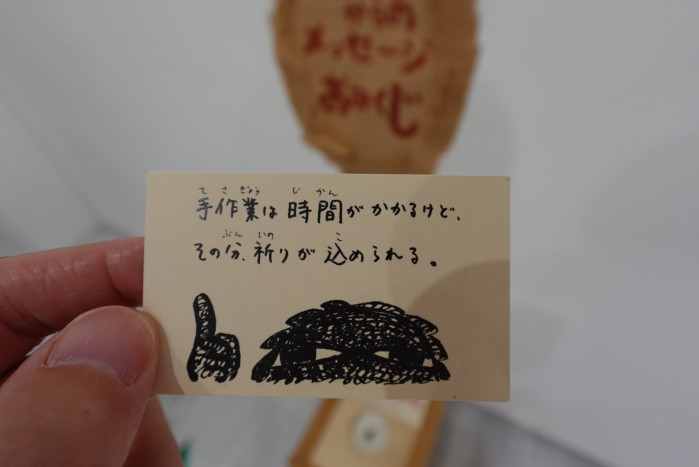 からの
メッセージ
おみくじ
手作業は時間がかかるけど、
その分、祈りが込められる。